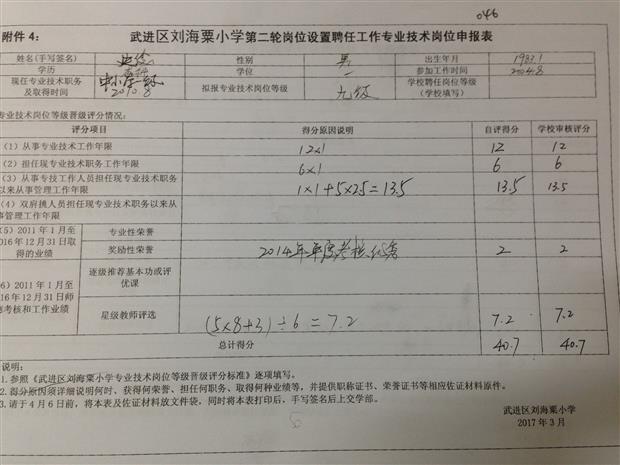 046
附件 4： 武进区刘海粟小学第二轮岗位设置聘任工作专业技术岗位申报表
姓名(手写签名) 性别 男 出生年月 1983.1
学历 本科 学位 — 参加工作时间 2004.8
现任专业技术职务及取得时间 中小学一级 2010.8 拟报专业技术岗位等级 九级 学校聘任岗位等级（学校填写）
专业技术岗位等级晋级评分情况：
评分项目 得分原因说明 自评得分 学校审核评分
（1）从事专业技术工作年限 12×1 12 12
（2）担任现专业技术职务工作年限 6×1 6 6
（3）从事专技工作人员担任现专业技术职务
以来从事管理工作年限 1×1+5×2.5=13.5 13.5 13.5
（4）双肩挑人员担任现专业技术职务以来从
事管理工作年限
（5）2011 年 1 月至
2016 年 12 月 31 日取
得的业绩
专业性荣誉
奖励性荣誉 2014年年度考核优秀 2 2
6）2011 年 1 月至
2016 年 12 月 31 日师
德考核和工作业绩
逐级推荐基本功或评优课
星级教师评选 (5×8+3)÷6=7.2 7.2 7.2
总计得分 40.7 40.7
说明：
1.参照《武进区刘海粟小学专业技术岗位等级晋级评分标准》逐项填写。
2.得分原因须详细说明何时、获得何荣誉、担任何职务、取得何种业绩等，并提供职称证书、荣誉证书等相应佐证材料原件。
3.请于 4 月 6 日前，将本表及佐证材料放文件袋，同时将本表打印后，手写签名后上交学部。
武进区刘海粟小学
2017 年 3 月